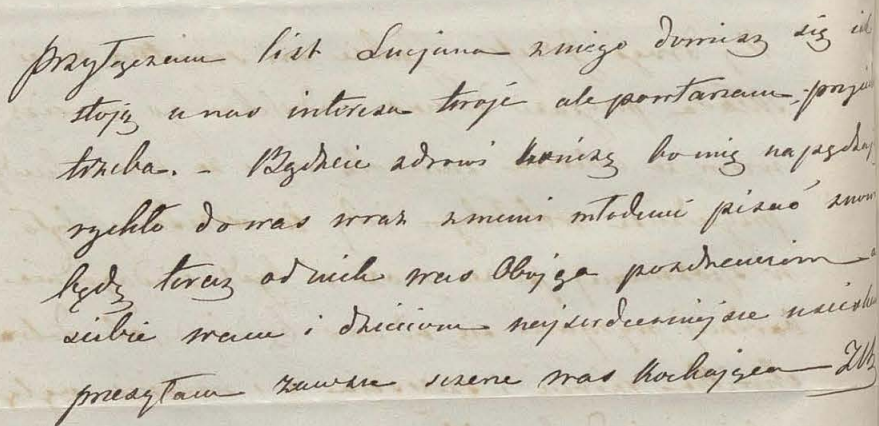 przyłączam list Lucjana z niego dowiesz się
stoją u nas interesa twoje ale powtarzam
trzeba. – Bądźcie zdrowi kończę bo mię napędzają
rychło do was wraz z memi młodemi pisać znow
będę teraz od nich was Oboyga pozdrawiam a
siebie wam i dzieciom najserdeczniejsze
przesyłam zawsze szczerze was kochająca